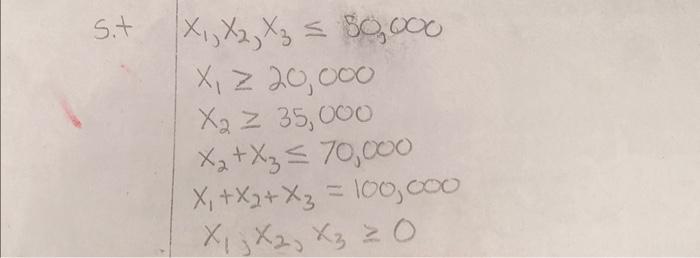 s.t X₁, X₂, X₃ ≤ 50,000
X₁ ≥ 20,000
X₂ ≥ 35,000
X₂+X₃ ≤ 70,000
X₁+X₂+X₃ = 100,000
X₁, X₂, X₃ ≥ 0